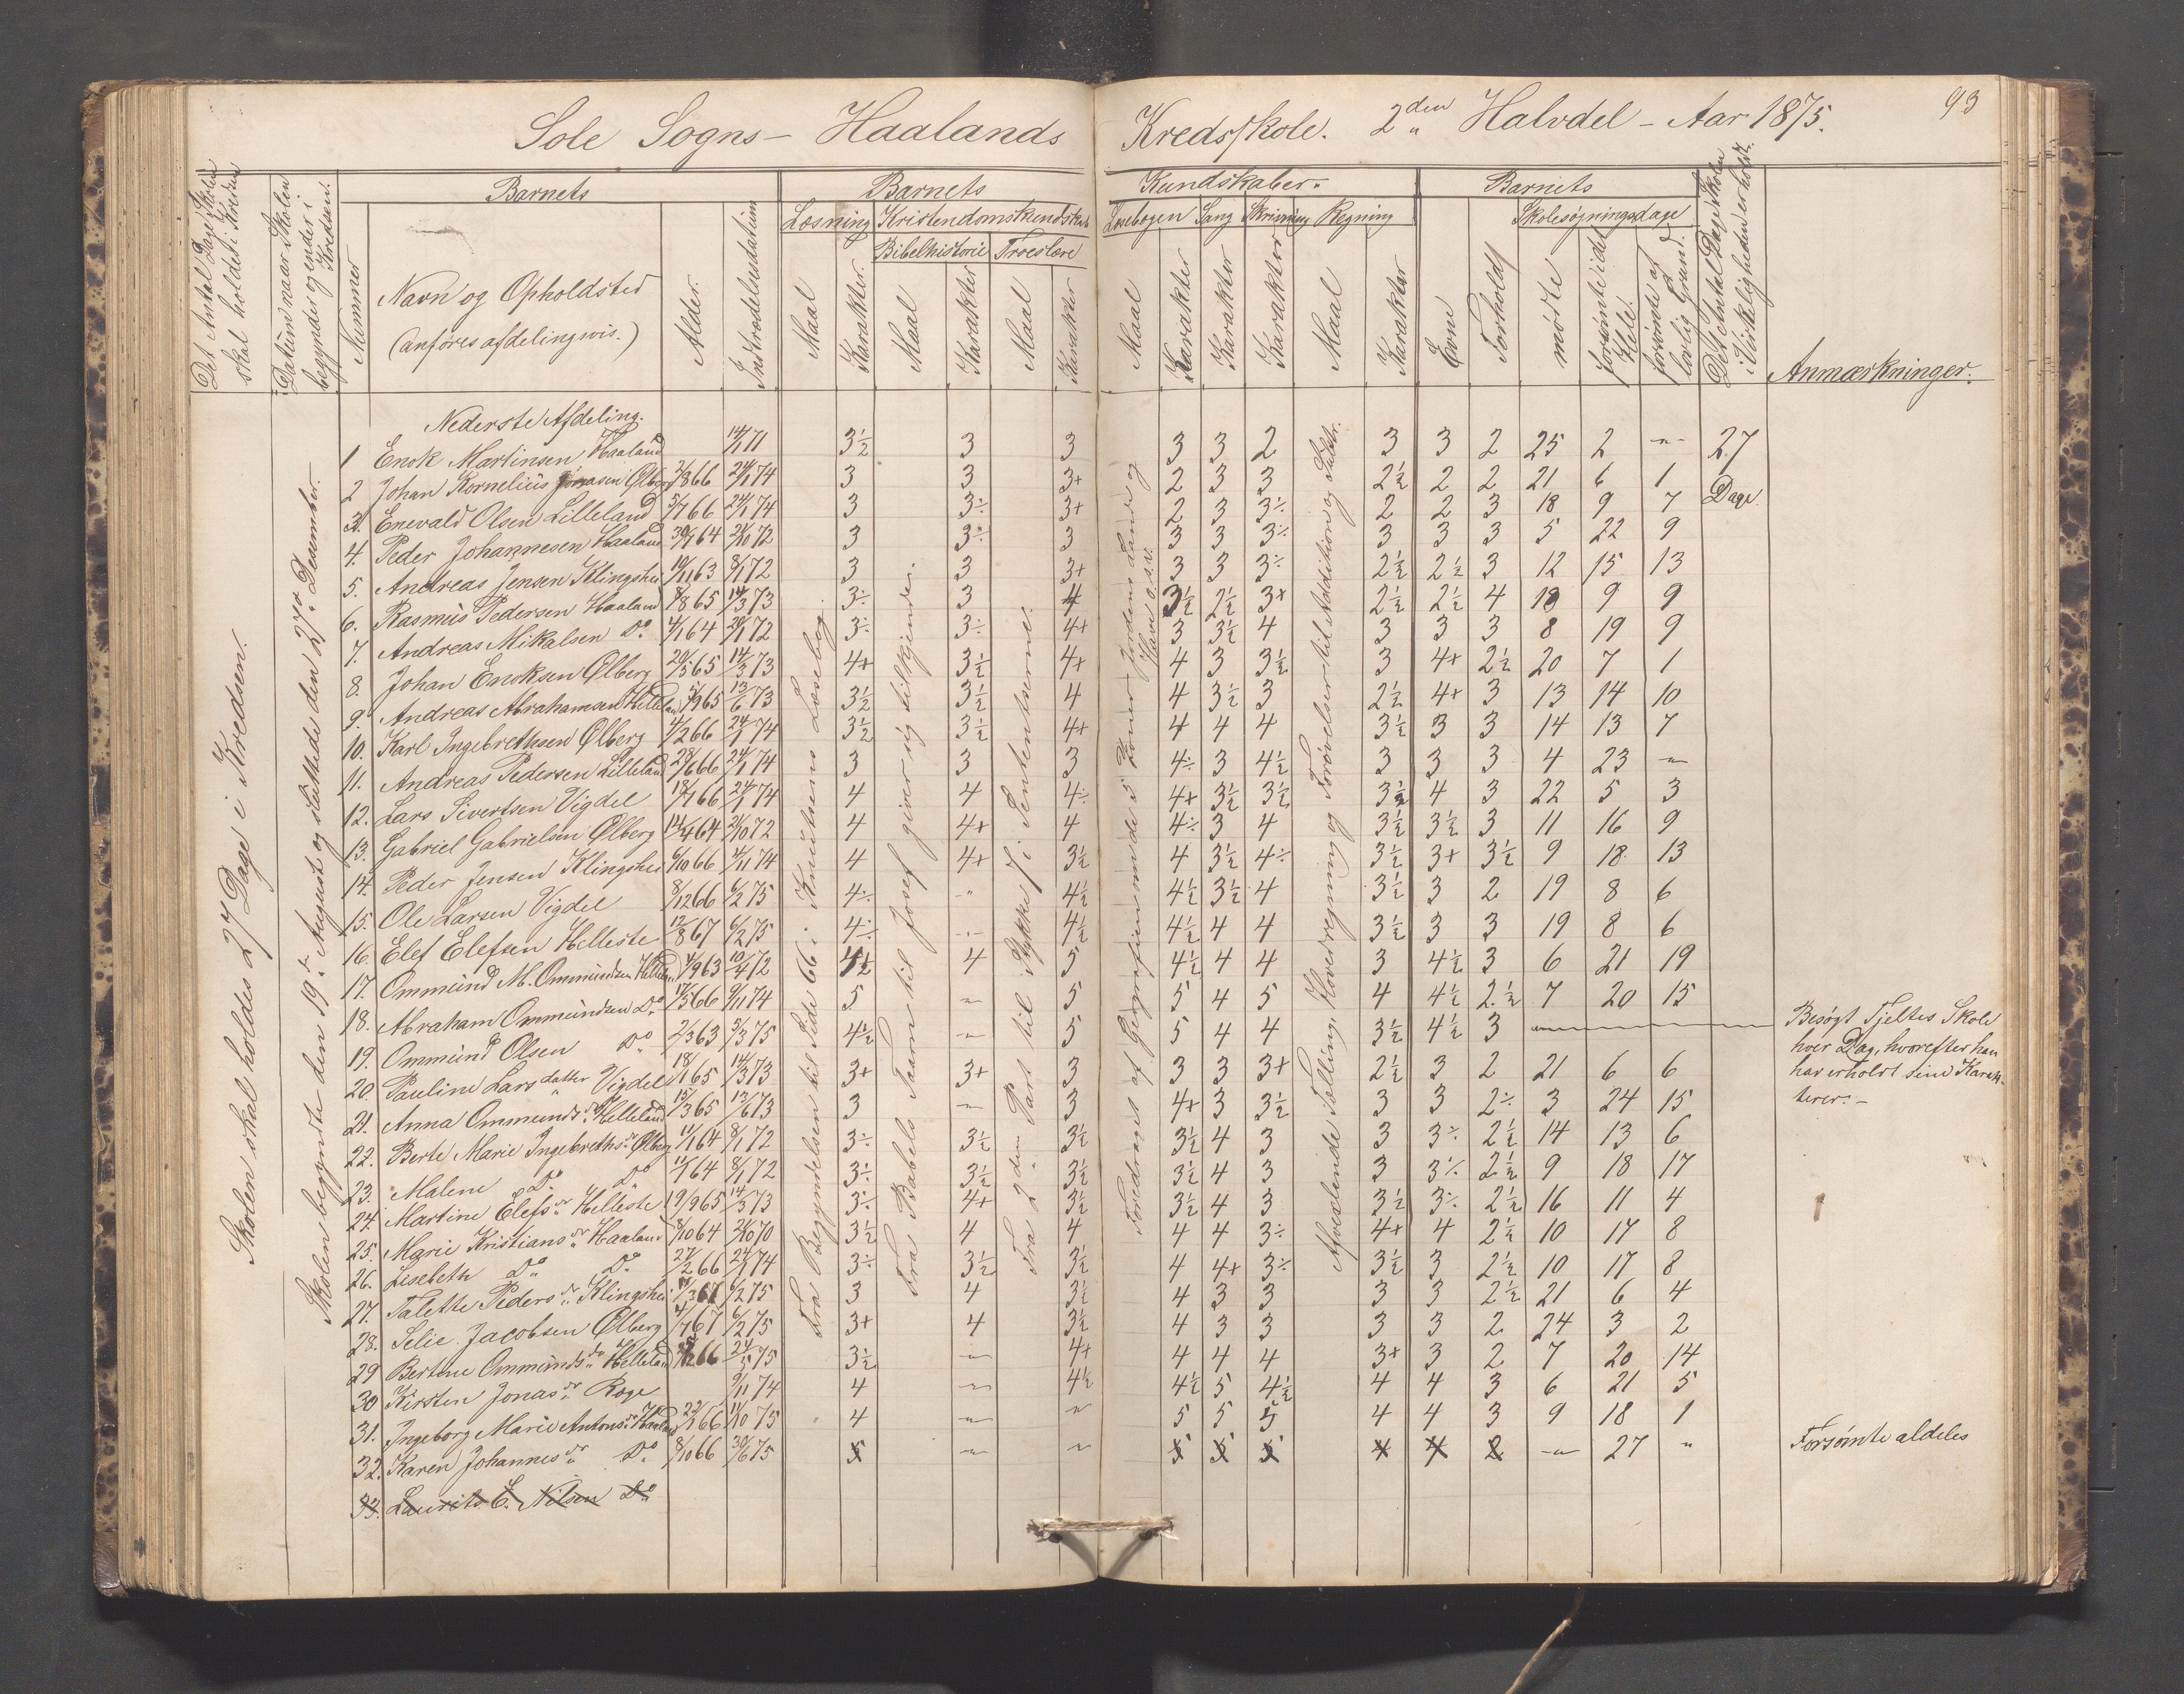 Sole Sogns – Haalands Kredsskole. 2den Halvdel – Aar 1875.
93
Det Antal Dage Skolen skal holdes i Kredsen
Datum naar Skolen begynder og ender i Kredsen.
Nummer
Barnets
Navn og Opholdsted
(anføres afdelingvis.)
Alder.
Indtrædelsesdatum
Barnets Kundskaber.
Læsning Kristendomskundskab
Bibelhistorie Troeslære
Læsebogen Sang Skrivning Regning
Maal Karakter. Maal Karakter Maal Karakter
Maal Karakter Karakter Karakter Maal Karakter
Barnets
Evne Forhold
Skolesøgningsdage
mødte
forsømte i det Hele.
forsømte af lovlig Grund.
Det Antal Dage Skolen i Virkeligheden er holdt.
Anmærkninger.
Skolen skal holdes 27 Dage i Kredsen.
Skolen begyndte den 19de August og sluttede den 27de December.
Fra Begyndelsen til Side 66 i Knutsens Læsebog.
Fra Babels Taarn til Josef giver sig tilkjende.
Fra 2den Part til Stykke 7 i Sententserne.
Foredraget af Geografien om de 5 Zoner, Jordens Lande og Have o.s.v.
Afvexlende Tælling, Hovedregning og Forøvelser til Addition og Subtr.
Nederste Afdeling.
1 Enok Martinsen Haaland 14/1 71 3½ 3 3 3 3 2 3 3 2 25 2 -"- 27
2 Johan Kornelius Jonasen Ølberg 2/8 66 24/1 74 3 3 3+ 2 3 3 2½ 2 2 21 6 1 Dage.
3. Enevald Olsen Lilleland 5/7 66 24/1 74 3 3÷ 3+ 2 3 3÷ 2 2 3 18 9 7
4. Peder Johannesen Haaland 30/7 64 21/10 72 3 3÷ 3 3 3 3÷ 3 3 3 5 22 9
5. Andreas Jensen Klingshei 10/11 63 8/1 72 3 3 3+ 3 3 3÷ 2½ 2½ 3 12 15 13
6. Rasmus Pedersen Haaland 8/8 65 14/3 73 3÷ 3 4 3½ 2½ 3+ 2½ 2½ 4 18 9 9
7. Andreas Mikalsen Do 4/1 64 20/1 72 3÷ 3÷ 4+ 3 3½ 4 3 3 3 8 19 9
8. Johan Enoksen Ølberg 20/5 65 14/3 73 4+ 3½ 4+ 4 3 3½ 3 4+ 2½ 20 7 1
9. Andreas Abrahamsen Helleland 9/9 65 13/6 73 3½ 3½ 4 4 3½ 3 2½ 4+ 3 13 14 10
10. Karl Ingebrethsen Ølberg 4/2 66 24/1 74 3½ 3½ 4+ 4 4 4 3½ 3 3 14 13 7
11. Andreas Pedersen Lilleland 28/6 66 24/1 74 3 3 3 4÷ 3 4½ 3 3 3 4 23 -"-
12. Lars Sivertsen Vigdel 18/1 66 24/1 74 4 4 4÷ 4+ 3½ 3½ 3½ 4 3 22 5 3
13. Gabriel Gabrielsen Ølberg 14/4 64 21/10 72 4 4+ 4 4÷ 3 4 3½ 3½ 3 11 16 9
14. Peder Jensen Klingshei 6/10 66 4/11 74 4 4+ 3½ 4 3½ 4÷ 3½ 3+ 3½ 9 18 13
15. Ole Larsen Vigdel 8/12 66 6/2 75 4÷ " 4½ 4½ 3½ 4 3½ 3 2 19 8 6
16. Elef Elefsen Helleste 12/8 67 6/2 75 4÷ -"- 4½ 4½ 4 4 3½ 3 3 19 8 6
17. Ommund M. Ommundsen Helleland 4/9 63 10/4 72 4½ 4 5 4½ 4 4 3 4½ 3 6 21 19
18. Abraham Ommundsen Do 17/5 66 9/11 74 5 -"- 5 5 4 5 4 4½ 2½ 7 20 15
19. Ommund Olsen Do 2/3 63 5/3 75 4½ -"- 5 5 4 4 3½ 4½ 3 -"-
Besøgt Tjeltes Skole
hver Dag, hvorefter han
har erholdt sine Karak-
terer. –
20. Pauline Larsdatter Vigdel 18/1 65 14/3 73 3+ 3+ 3 3 3 3+ 2½ 3 2 21 6 6
21. Anna Ommundsdr Helleland 15/3 65 13/6 73 3 -"- 3 4+ 3 3½ 3 3 2÷ 3 24 15
22. Berte Marie Ingebrethsdr Ølberg 11/1 64 8/1 72 3÷ 3½ 3½ 3½ 4 3 3 3÷ 2½ 14 13 6
23. Malene Do Do 11/1 64 8/1 72 3÷ 3½ 3½ 3½ 4 3 3 3÷ 2½ 9 18 17
24. Martine Elefsdr Helleste 19/9 65 14/3 73 3÷ 4+ 3½ 3½ 4 3 3½ 3÷ 2½ 16 11 4
25. Marie Kristiansdr Haaland 8/10 64 21/10 70 3½ 4 4 4 4 3÷ 4+ 4 2½ 10 17 8
26. Lisebeth Do Do 27/2 66 24/1 74 3÷ 3½ 3½ 4 4+ 3÷ 3½ 3 2½ 10 17 8
27. Talette Pedersdr Klingshei 3 67 6/2 75 3 4 3½ 4 3 3 3 3 2½ 21 6 4
28. Selie Jacobsen Ølberg 4/7 67 6/2 75 3+ 4 3½ 4 3 3 3 3 2 24 3 2
29 Bertine Ommundsdr Helleland 66 24/5 75 3½ -"- 4+ 4 4 4 3+ 3 2 7 20 14
30 Kirsten Jonasdr Røge 9/11 74 4 -"- 4½ 4½ 5 4½ 4 4 3 6 21 5
31. Ingeborg Marie Antonsdr Haaland 22/1 66 11/10 75 4 -"- " 5 5 5 4 4 3 9 18 1
32. Karen Johannesdr Do 8/10 66 30/6 75 5 -"- " 5 5 5 4 4 2 -"- 27 " Forsømte aldeles
33. Laurits C. Nilsen Do